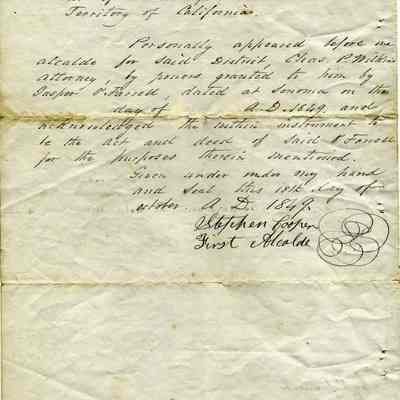 Territory of California.
Personally appeared before me
alcalde for said District, Chas. P. Wilkins
Attorney, by powers granted to him by
Jasper O'Farrell, dated at Sonoma on the
day of A.D. 1849, and
acknowledged the within instrument to
be the act and deed of Said O'Farrell
for the purposes therein mentioned.
Given under my hand
and Seal this 18th day of
october A. D. 1849.
Stephen Cooper
First Alcalde